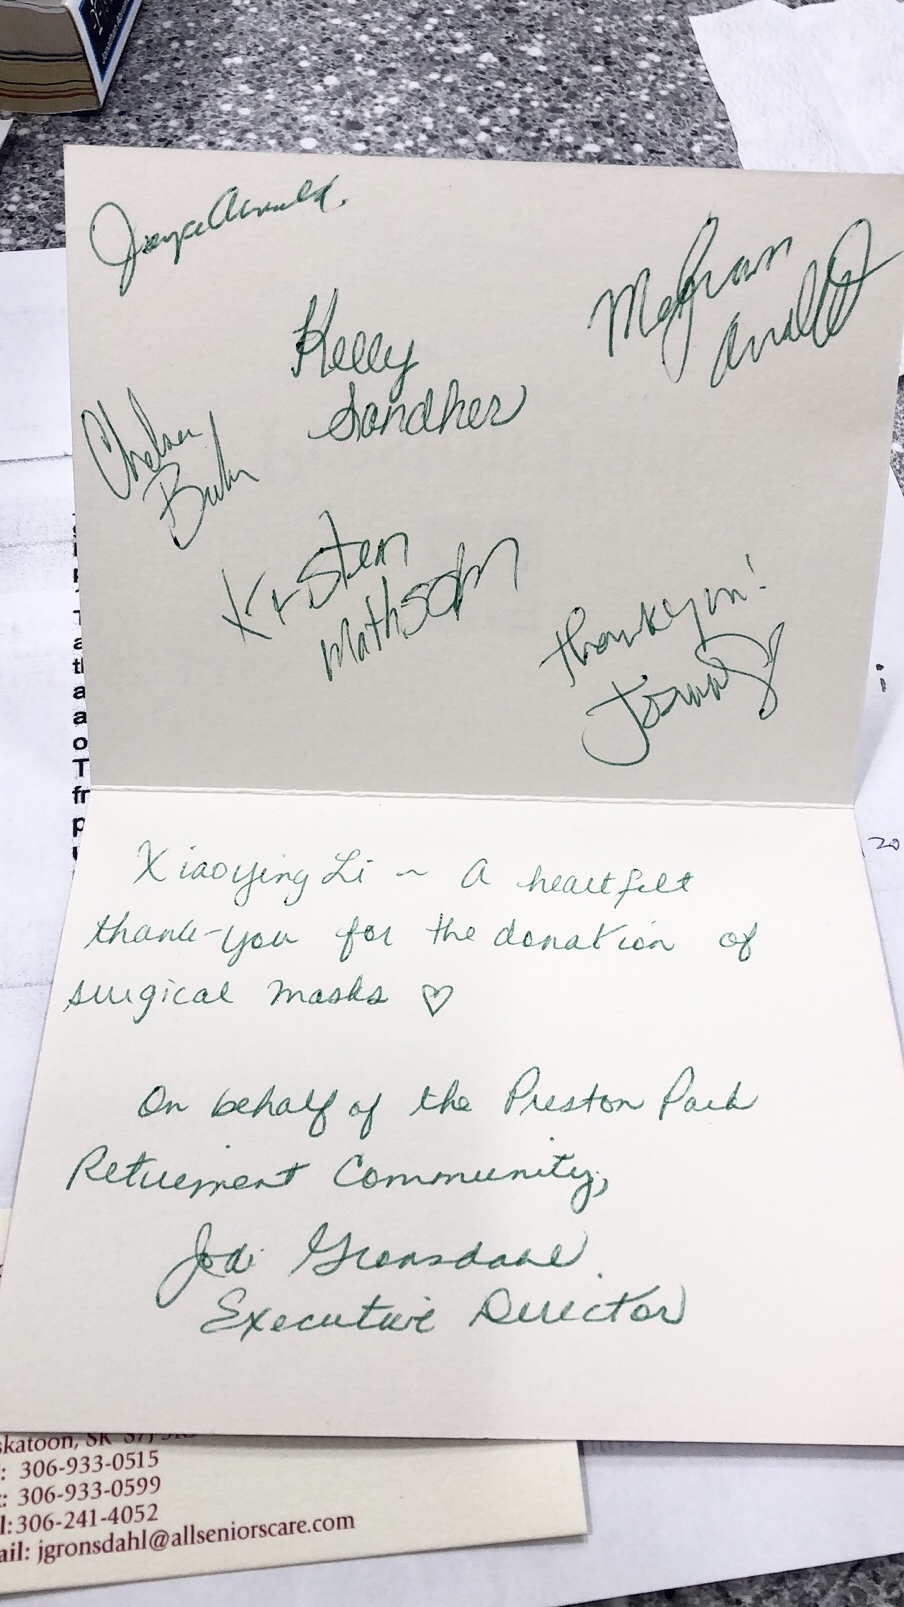 Joyce Arnold.
Kelly
Sandher
Chelsea
Kirsten
Mathson
thank you!
Xiaoying Li ~ A heartfelt
thank-you for the donation of
surgical masks ♡
On behalf of the Preston Park
Retirement Community,
Jodi Gronsdahl
Executive Director
skatoon, SK S7J
: 306-933-0515
: 306-933-0599
l: 306-241-4052
ail: jgronsdahl@allseniorscare.com
20